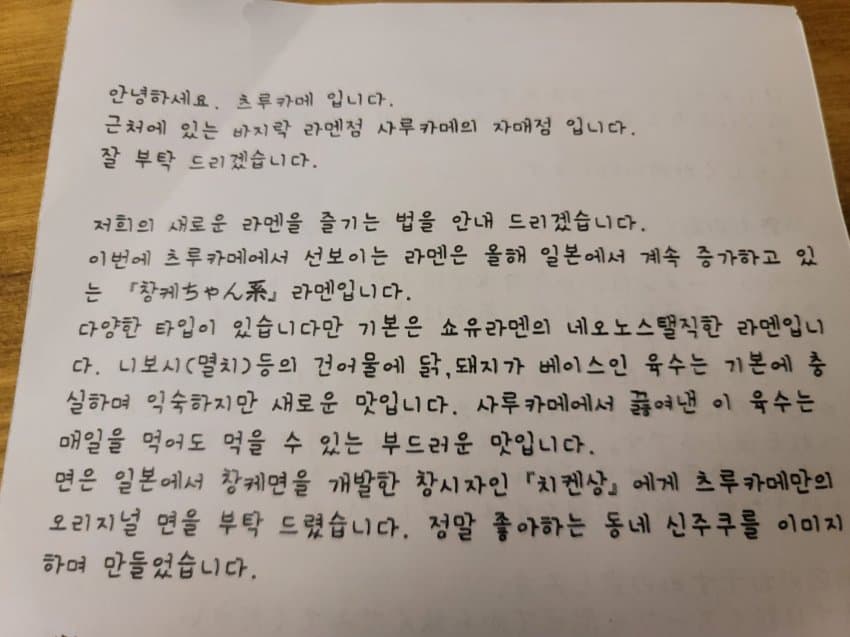 안녕하세요. 츠루카메 입니다.
근처에 있는 바지락 라멘점 사루카메의 자매점 입니다.
잘 부탁 드리겠습니다.
저희의 새로운 라멘을 즐기는 법을 안내 드리겠습니다.
이번에 츠루카메에서 선보이는 라멘은 올해 일본에서 계속 증가하고 있
는 『창케ちゃん系』라멘입니다.
다양한 타입이 있습니다만 기본은 쇼유라멘의 네오노스탤직한 라멘입니
다. 니보시(멸치)등의 건어물에 닭,돼지가 베이스인 육수는 기본에 충
실하며 익숙하지만 새로운 맛입니다. 사루카메에서 끓여낸 이 육수는
매일을 먹어도 먹을 수 있는 부드러운 맛입니다.
면은 일본에서 창케면을 개발한 창시자인 『치켄상』에게 츠루카메만의
오리지널 면을 부탁 드렸습니다. 정말 좋아하는 동네 신주쿠를 이미지
하며 만들었습니다.